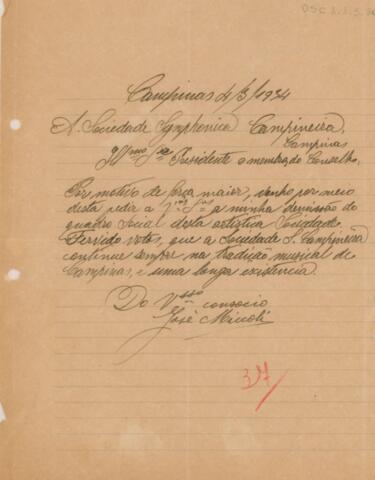 OSC 2.2.5
Campinas 4/3/1934
A Sociedade Symphonica Campineira,
Campinas
Illmo Snr Presidente e membros do Conselho.
Por motivo de força maior, venho por meio
desta pedir a a minha demissão do
quadro social desta artistica Sociedade.
Fervido votos, que a Sociedade S. Campineira
continue sempre na tradução musical de
Campinas, e uma longa existencia.
Do Vsso consocio
José Miccoli
37/